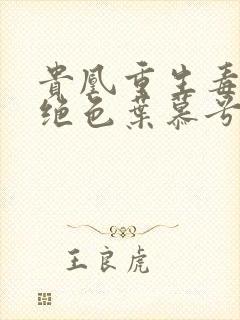 貴凰重生毒
绝色葉慕兮
王良虎